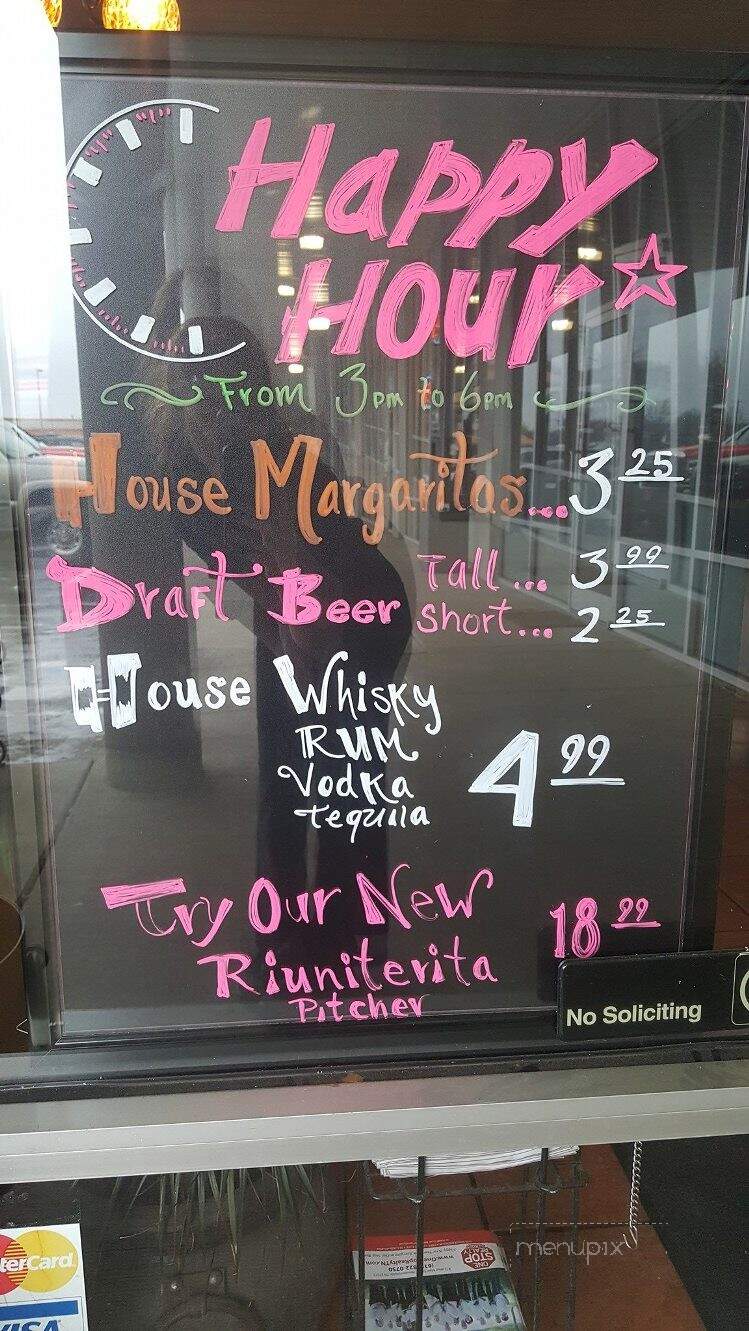 Happy
Hour
From 3pm to 6pm
House Margaritas... 3 25
Draft Beer Tall ... 3 99
Short... 2 25
House Whisky
RUM
Vodka
Tequila
4 99
Try Our New
Riuniterita
Pitcher
18 99
No Soliciting
terCard
VISA
STOP
menupix